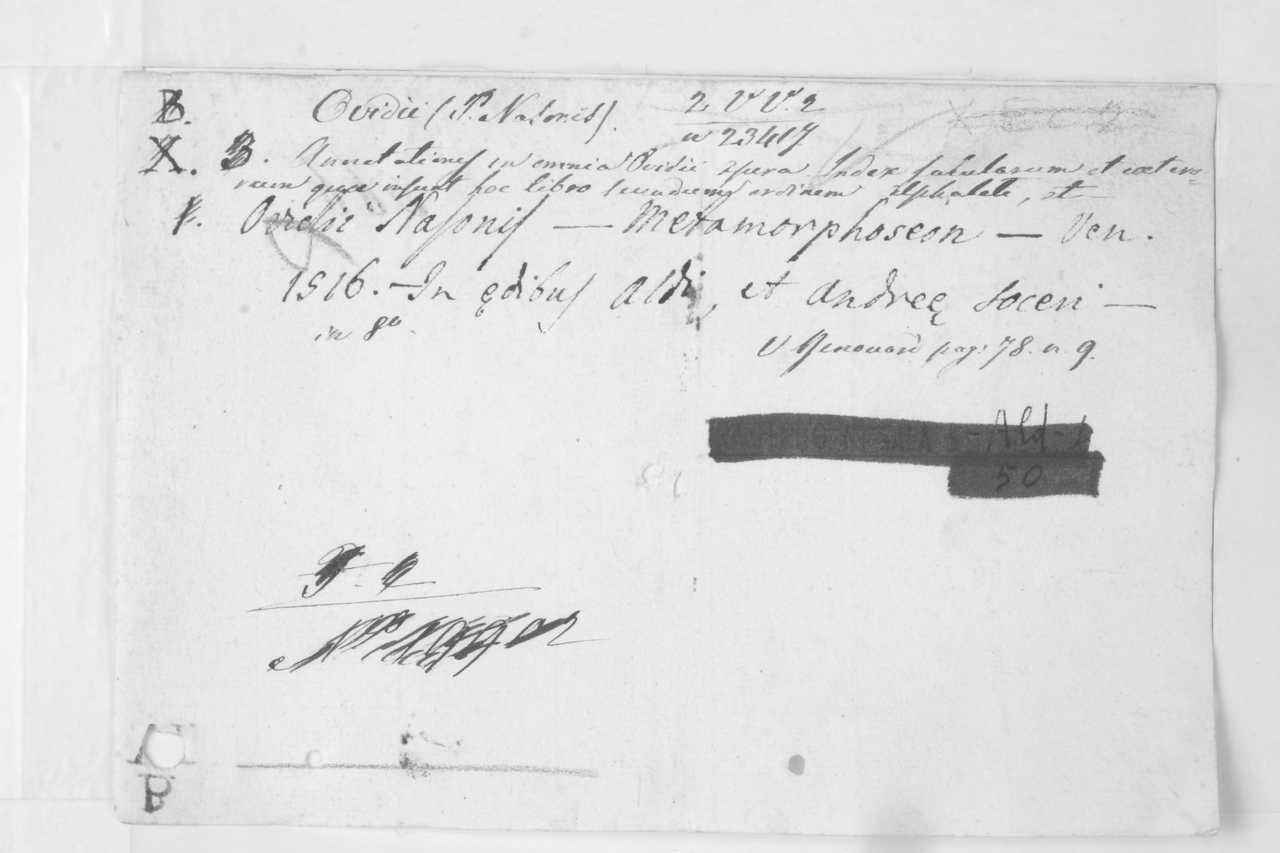 B. Ovidii (P. Nasonis). 2 V V. 2
n 23417
X. 3. Annotationes in omnia Ovidii opera Index fabularum et caetero-
rum quae insunt hoc libro secundum ordinem alphabeti, et
P. Ovidii Nasonis — Metamorphoseon — Ven.
1516. — In ędibus Aldi, et Andreę Soceri —
in 8°.
V Renouard pag: 78. n. 9.
Ald-1
50
B